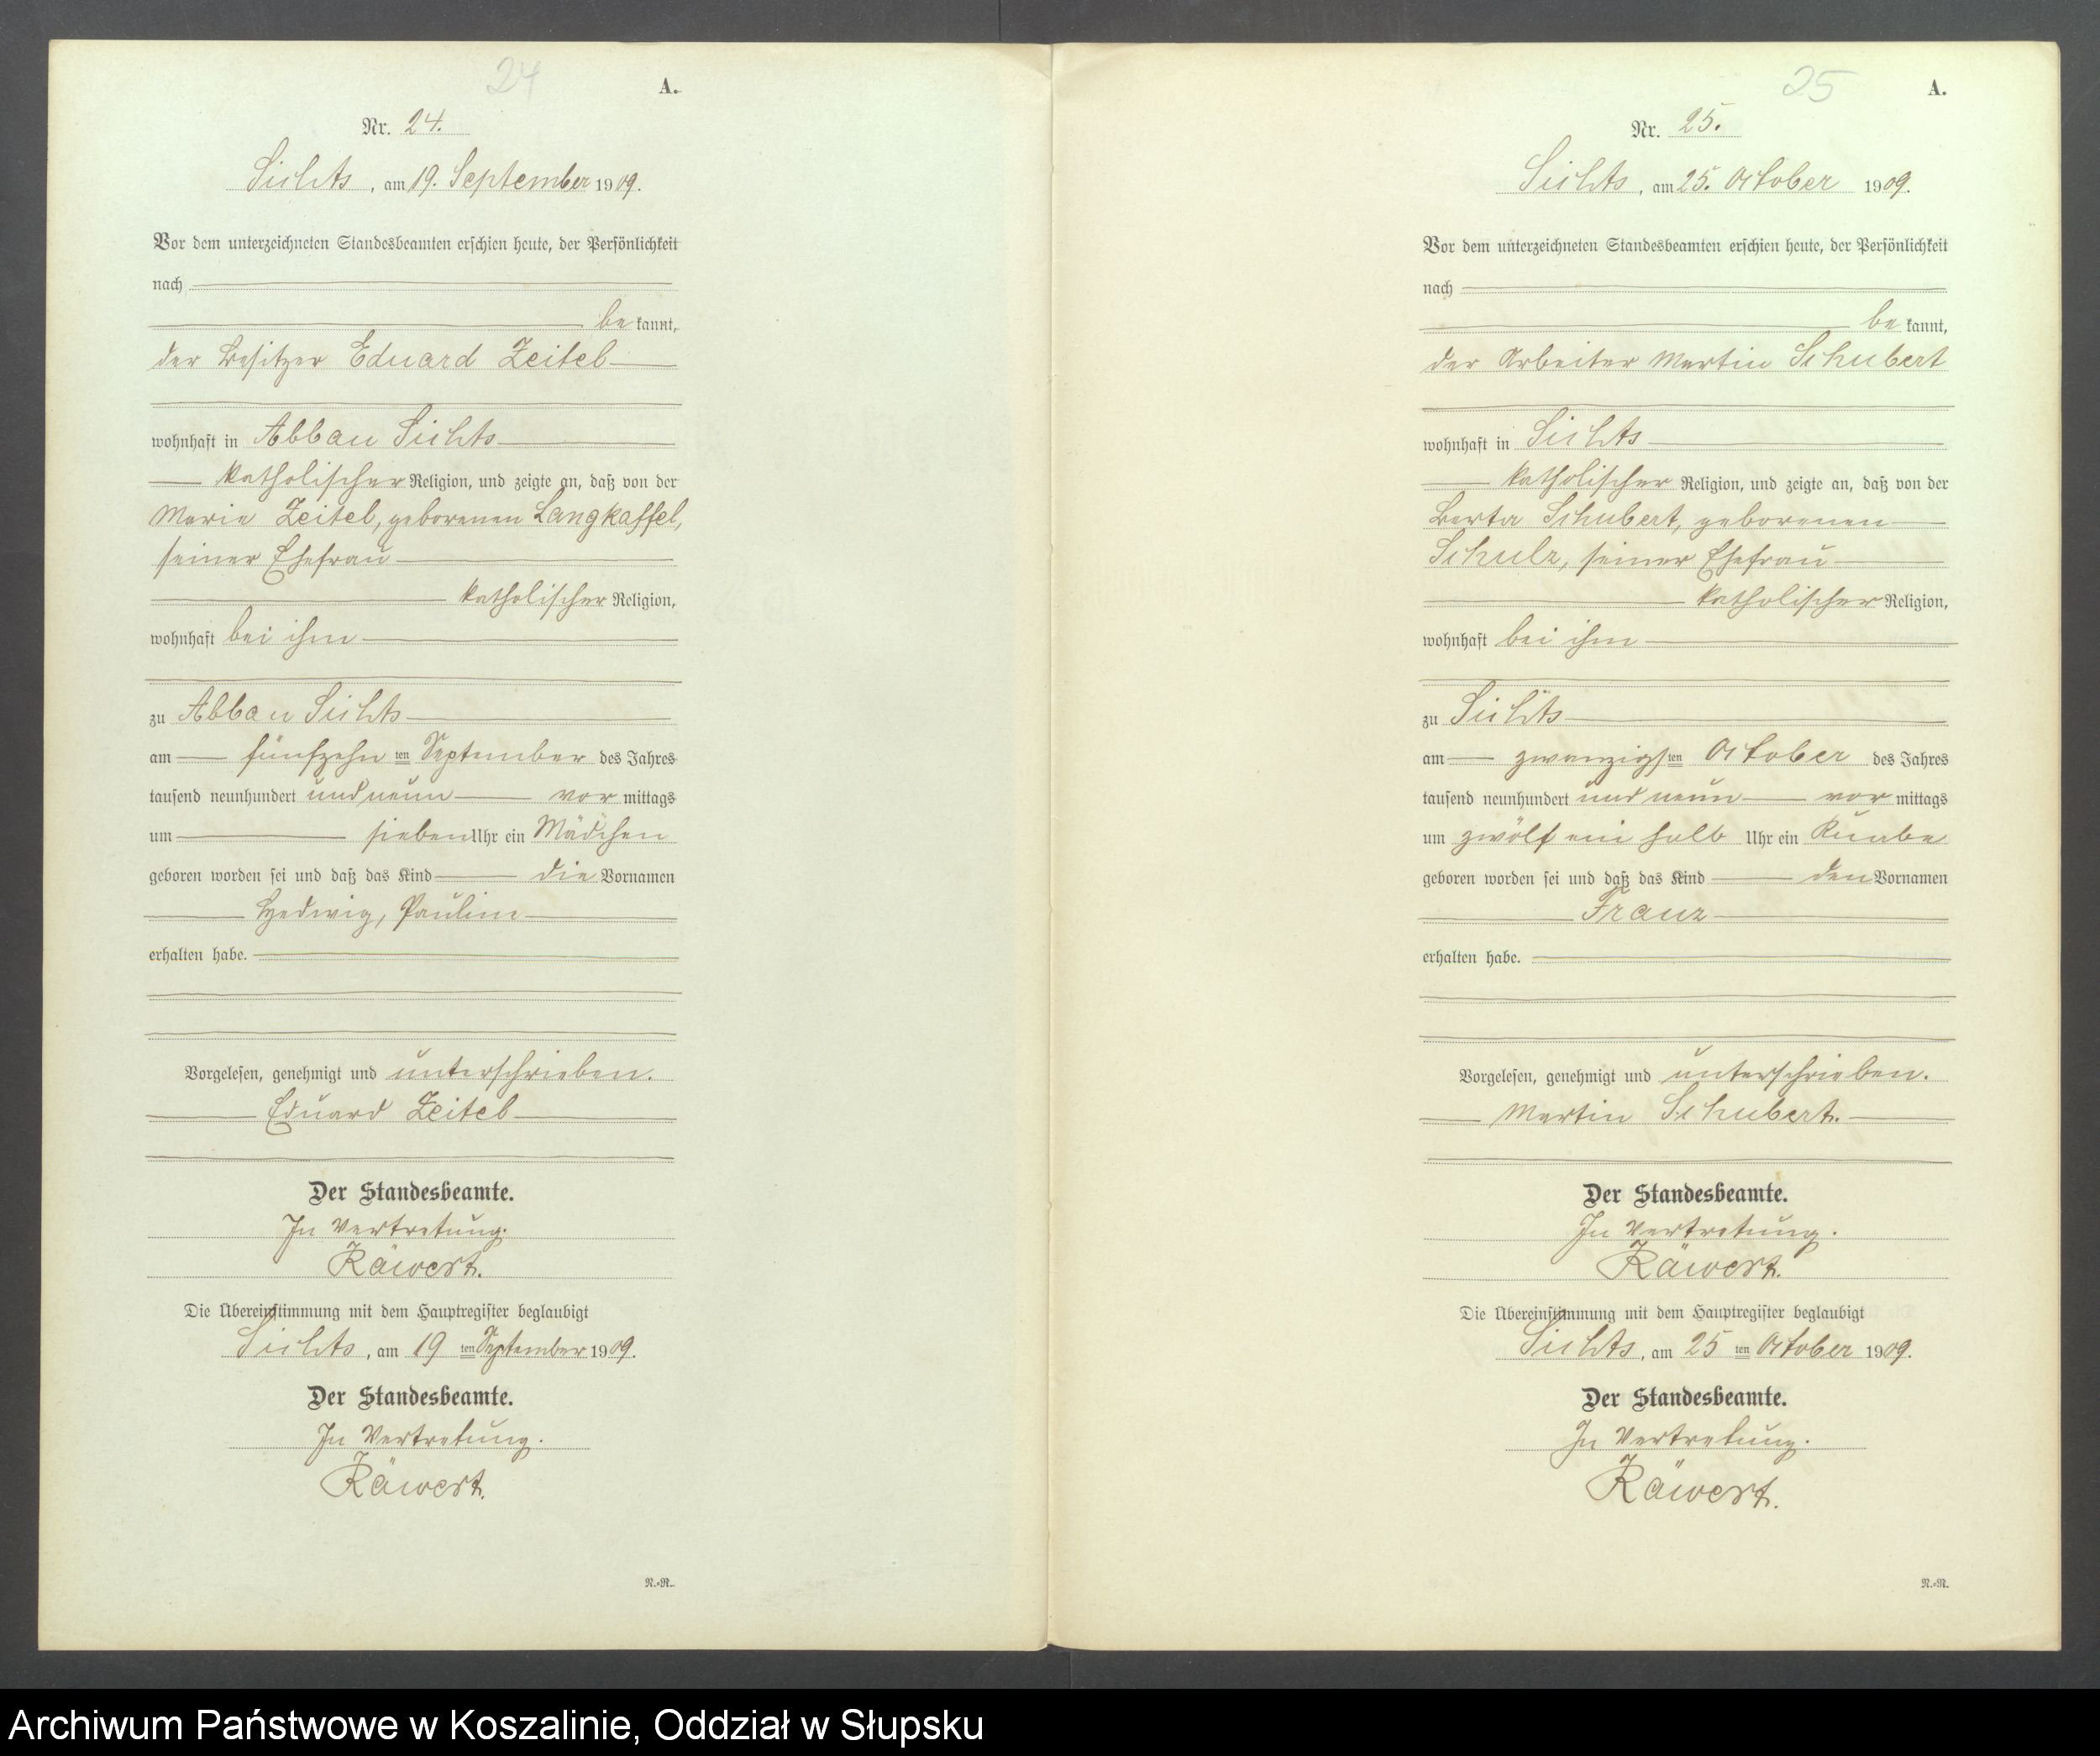 24
A.
Nr. 24.
Sichts, am 19. September 1909.
Vor dem unterzeichneten Standesbeamten erschien heute, der Persönlichkeit
nach
be kannt,
der Besitzer Eduard Zeitel
wohnhaft in Abbau Sichts
katholischer Religion, und zeigte an, daß von der
Marie Zeitel, geborenen Langkaffel,
seiner Ehefrau
katholischer Religion,
wohnhaft bei ihm
zu Abbau Sichts
am fünfzehn ten September des Jahres
tausend neunhundert und neun vor mittags
um sieben Uhr ein Mädchen
geboren worden sei und daß das Kind die Vornamen
Hedwig, Pauline
erhalten habe.
Vorgelesen, genehmigt und unterschrieben.
Eduard Zeitel
Der Standesbeamte.
In Vertretung.
Räwert.
Die Übereinstimmung mit dem Hauptregister beglaubigt
Sichts, am 19 ten September 1909.
Der Standesbeamte.
In Vertretung.
Räwert.
N.=R.
25
A.
Nr. 25.
Sichts, am 25. October 1909.
Vor dem unterzeichneten Standesbeamten erschien heute, der Persönlichkeit
nach
be kannt,
der Arbeiter Martin Schubert
wohnhaft in Sichts
katholischer Religion, und zeigte an, daß von der
Berta Schubert, geborenen
Schulz, seiner Ehefrau
katholischer Religion,
wohnhaft bei ihm
zu Sichts
am zwanzigs ten October des Jahres
tausend neunhundert und neun vor mittags
um zwölf ein halb Uhr ein Knabe
geboren worden sei und daß das Kind den Vornamen
Franz
erhalten habe.
Vorgelesen, genehmigt und unterschrieben.
Martin Schubert.
Der Standesbeamte.
In Vertretung.
Räwert.
Die Übereinstimmung mit dem Hauptregister beglaubigt
Sichts, am 25 ten October 1909.
Der Standesbeamte.
In Vertretung.
Räwert.
N.=R.
Archiwum Państwowe w Koszalinie, Oddział w Słupsku